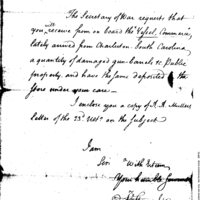 The Secretary of War requests that
you will receive from on board the Vessel Commerce,
lately arrived from Charleston South Carolina
a quantity of damaged gun barrels &c Public
property, and have the same deposited in the
Store under your care.
I enclose you a copy of A. A. Mullers
letter of the 23d. Ulto. on the subject.
I am
Sir "With Esteem
Your humble Servant